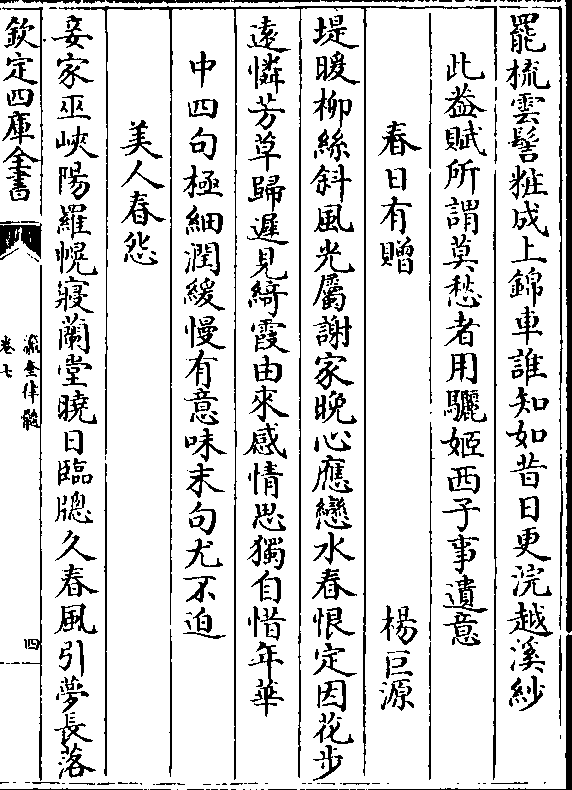 罷梳雲髻粧成上錦車誰知如昔日更浣越溪紗
此益賦所謂莫愁者用驪姬西子事遺意
春日有贈　楊巨源
堤暖柳絲斜風光屬謝家晚心應戀水春恨定因花步
遠憐芳草歸遲見綺霞由來感情思獨自惜年華
中四句極細潤緩慢有意味末句尤不迫
美人春怨
妾家巫峽陽羅幌寢蘭堂曉日臨牕久春風引夢長落
欽定四庫全書
瀛奎律髓
卷七
四